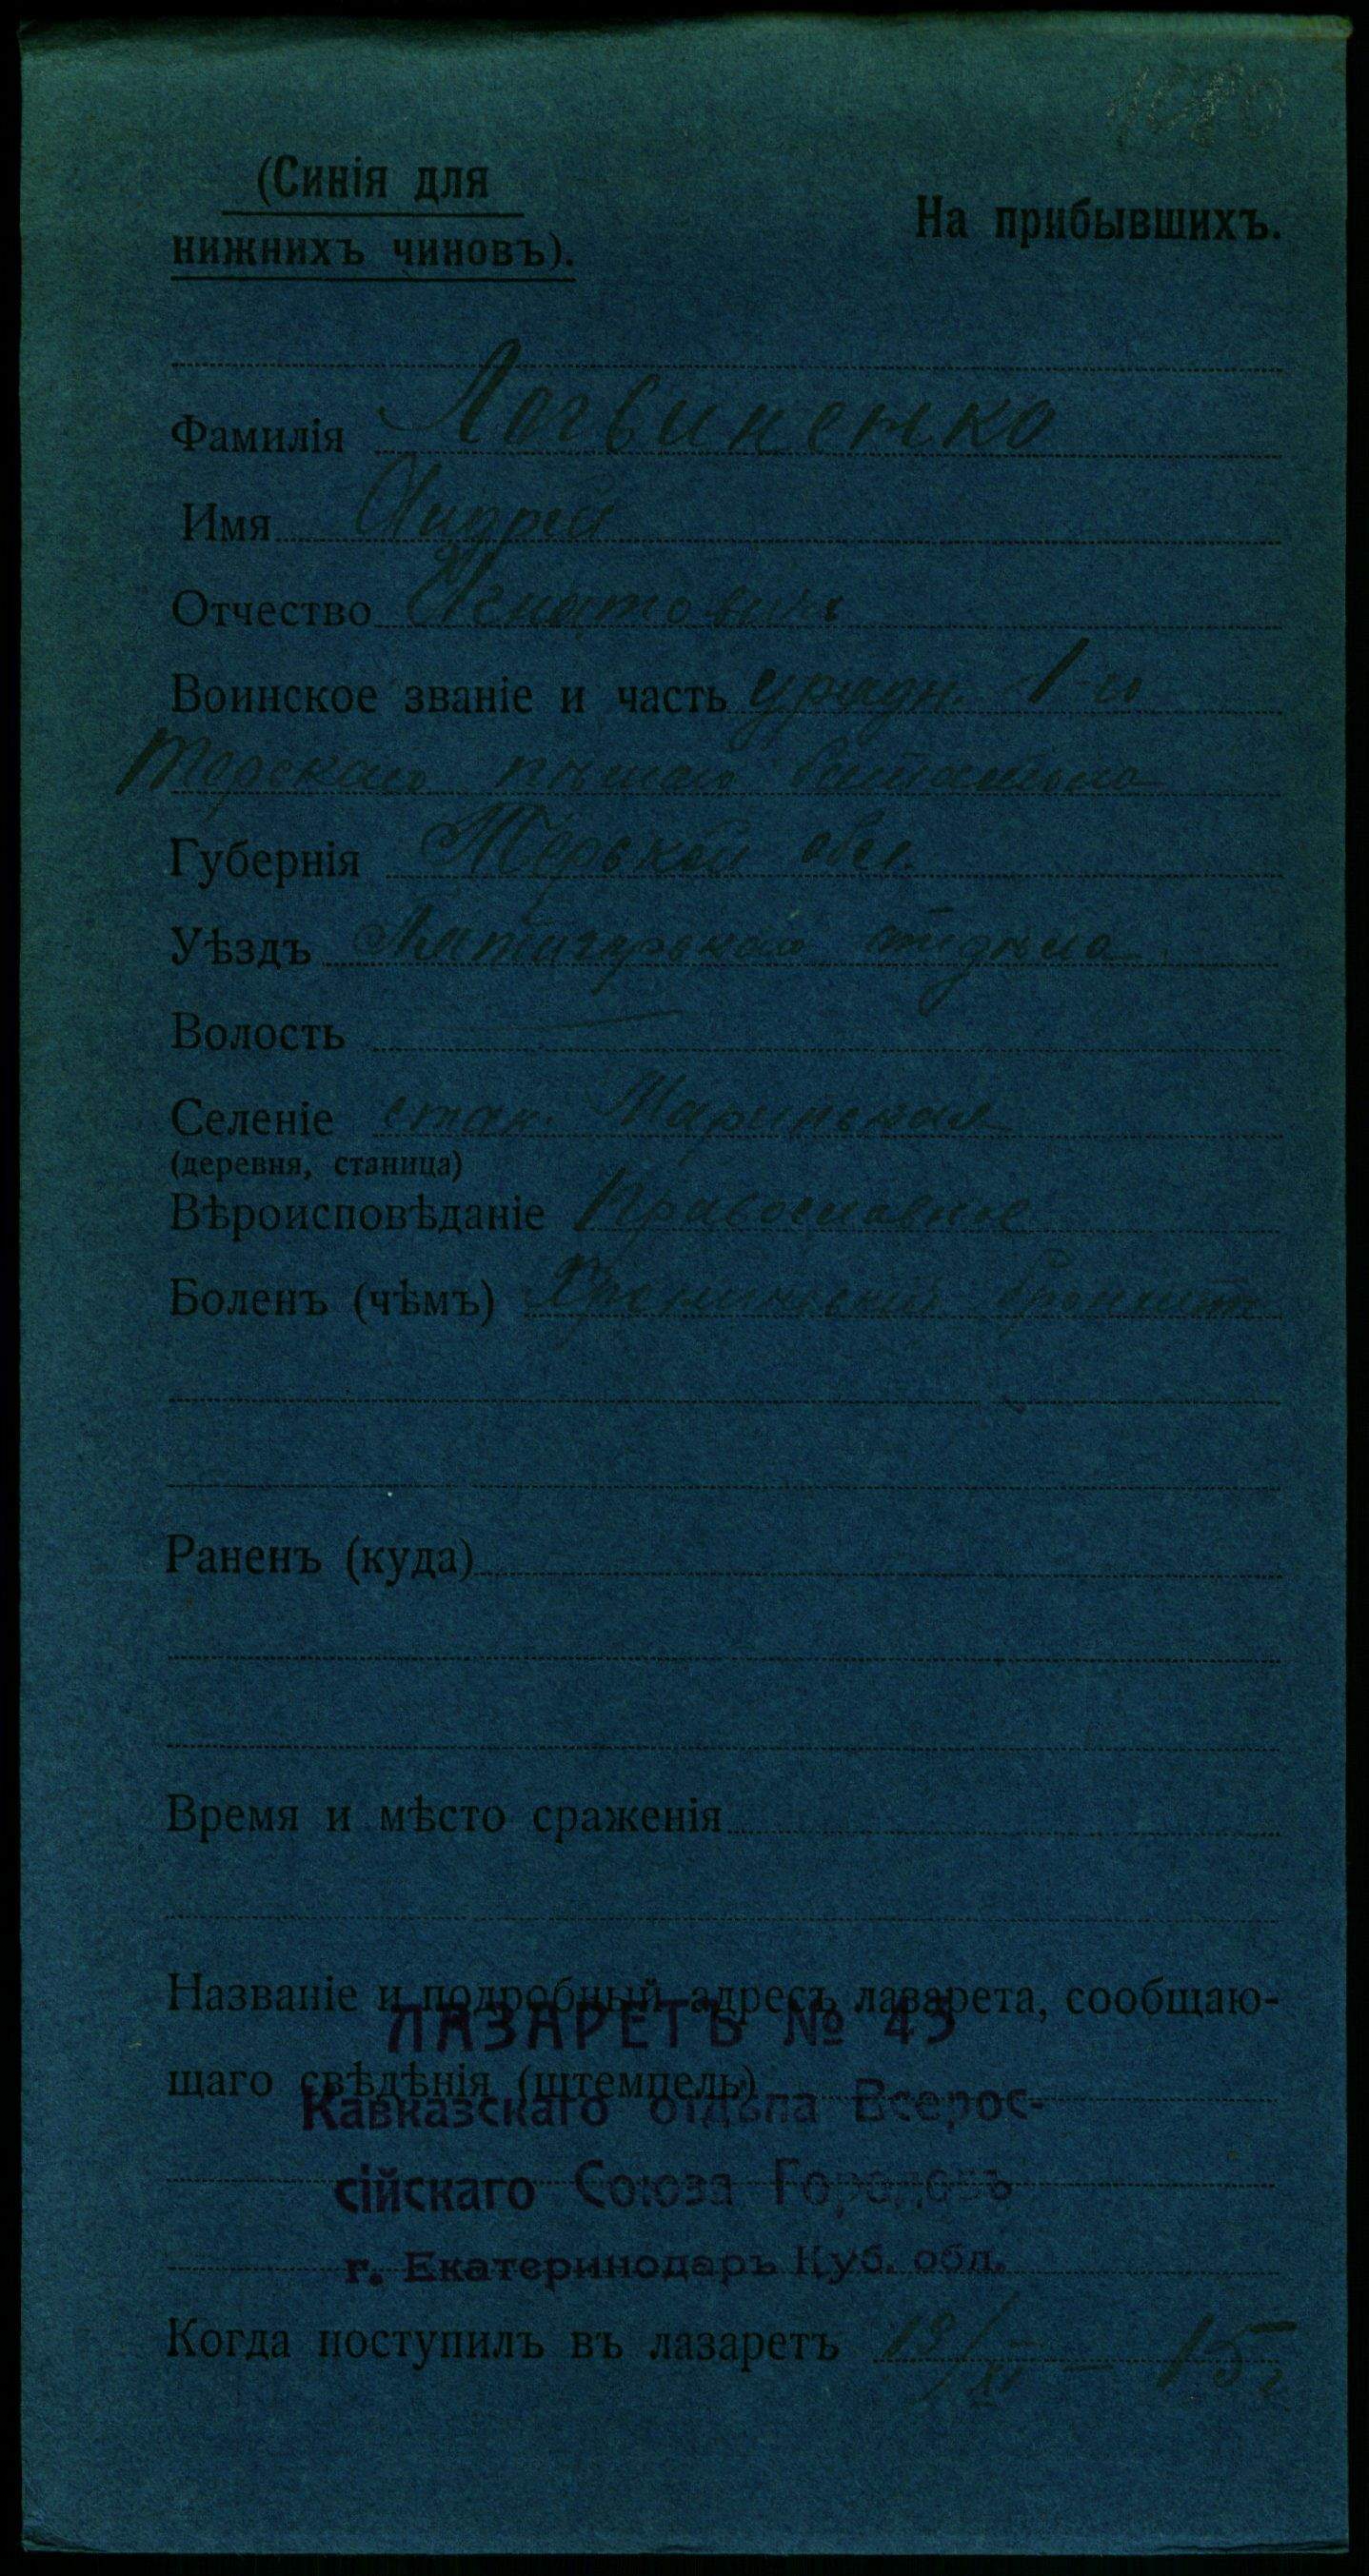 (Синія для
нижнихъ чиновъ).
На прибывшихъ.
Фамилія Логвиненко
Имя Андрей
Отчество Игнатовичъ
Воинское званіе и часть урядн. 1-го
Терскаго пѣшаго батальона
Губернія Терской обл.
Уѣздъ Пятигорскаго отдѣла
Волость —
Селеніе стан. Марьинская
(деревня, станица)
Вѣроисповѣданіе Православное
Боленъ (чѣмъ) Хроническій бронхитъ
Раненъ (куда)
Время и мѣсто сраженія
Названіе и подробный адресъ лазарета, сообщаю-
ЛАЗАРЕТЪ № 43
щаго свѣдѣнія (штемпель)
Кавказскаго отдѣла Всерос-
сійскаго Союза Городовъ
г. Екатеринодаръ Куб. обл.
Когда поступилъ въ лазаретъ 19/XI – 15 г